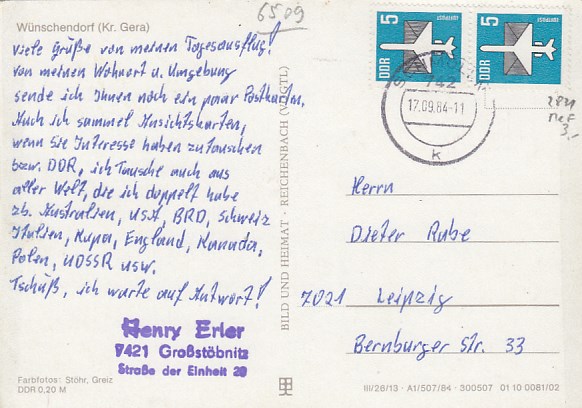 Wünschendorf (Kr. Gera)
6509
viele Grüße von meinen Tagesausflug!
von meinen Wohnort u. Umgebung
sende ich Ihnen noch ein paar Postkarten.
Auch ich sammel Ansichtskarten,
wenn Sie Interesse haben zu tauschen
bzw. DDR, ich Tausche auch aus
aller Welt, die ich doppelt habe
zb. Australien, USA, BRD, Schweiz
Italien, Kupa, England, Kanada,
Polen, UDSSR usw.
Tschüß, ich warte auf Antwort!
Henry Erler
7421 Großstöbnitz
Straße der Einheit 29
Farbfotos: Stöhr, Greiz
DDR 0,20 M
BILD UND HEIMAT · REICHENBACH (VOGTL)
5 DDR LUFTPOST
5 DDR LUFTPOST
742
17.09.84-11
k
2831
MeF
3,-
Herrn
Dieter Rabe
7021 Leipzig
Bernburger Str. 33
III/26/13 · A1/507/84 · 300507 01 10 0081/02